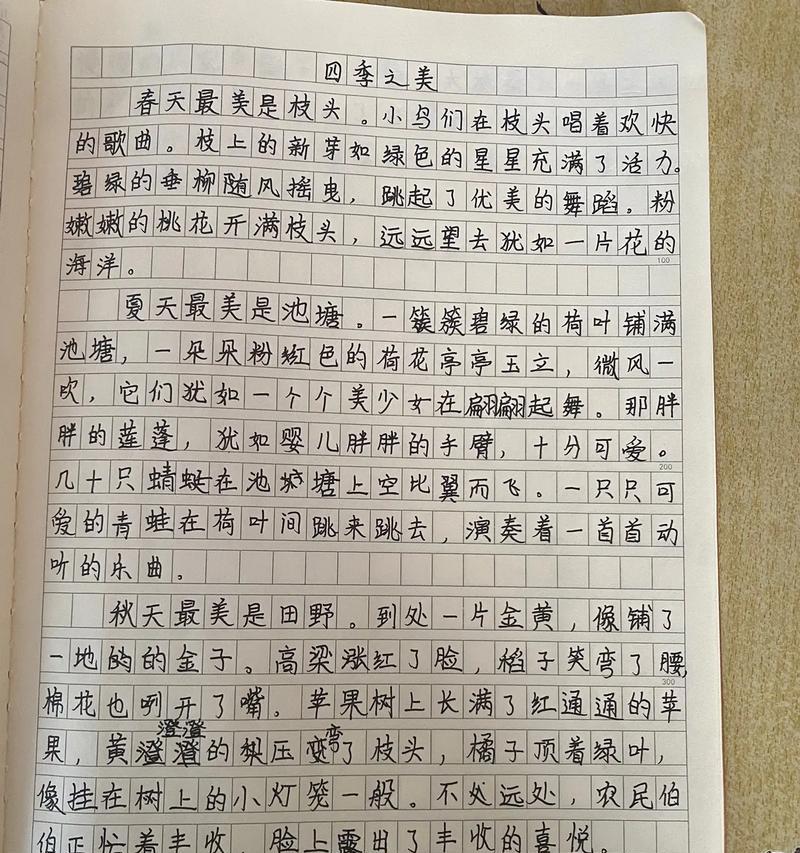 四季之美
春天最美是枝头。小鸟们在枝头唱着欢快
的歌曲。枝上的新芽如绿色的星星充满了活力。
碧绿的垂柳随风摇曳，跳起了优美的舞蹈。粉
嫩嫩的桃花开满枝头，远远望去犹如一片花的
海洋。
100
夏天最美是池塘。一簇簇碧绿的荷叶铺满
池塘，一朵朵粉红色的荷花亭亭玉立，微风一
吹，它们犹如一个个美少女在翩翩起舞。那胖
胖的莲蓬，犹如婴儿胖胖的手臂，十分可爱。
200
几十只蜻蜓在池塘上空比翼而飞。一只只可
爱的青蛙在荷叶间跳来跳去，演奏着一首首动
听的乐曲。
秋天最美是田野。到处一片金黄，像铺了
一地的金子。高粱涨红了脸，稻子笑弯了腰，
300
棉花也咧开了嘴。苹果树上长满了红通通的苹
果，黄澄澄的梨压弯了枝头，橘子顶着绿叶，
像挂在树上的小灯笼一般。不处远处，农民伯
伯正忙着丰收，脸上露出了丰收的喜悦。